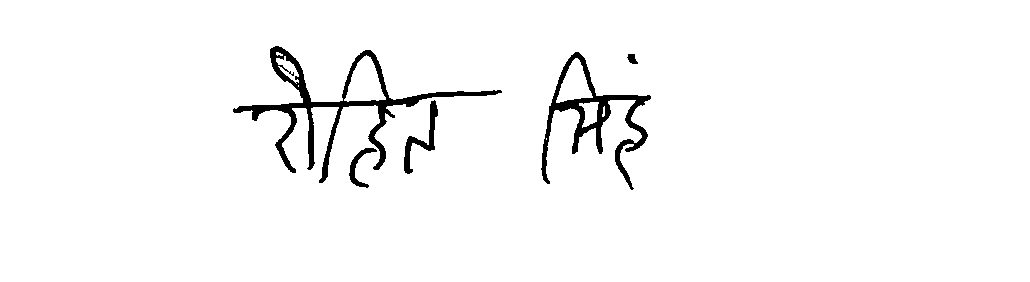 रोहित सिहं